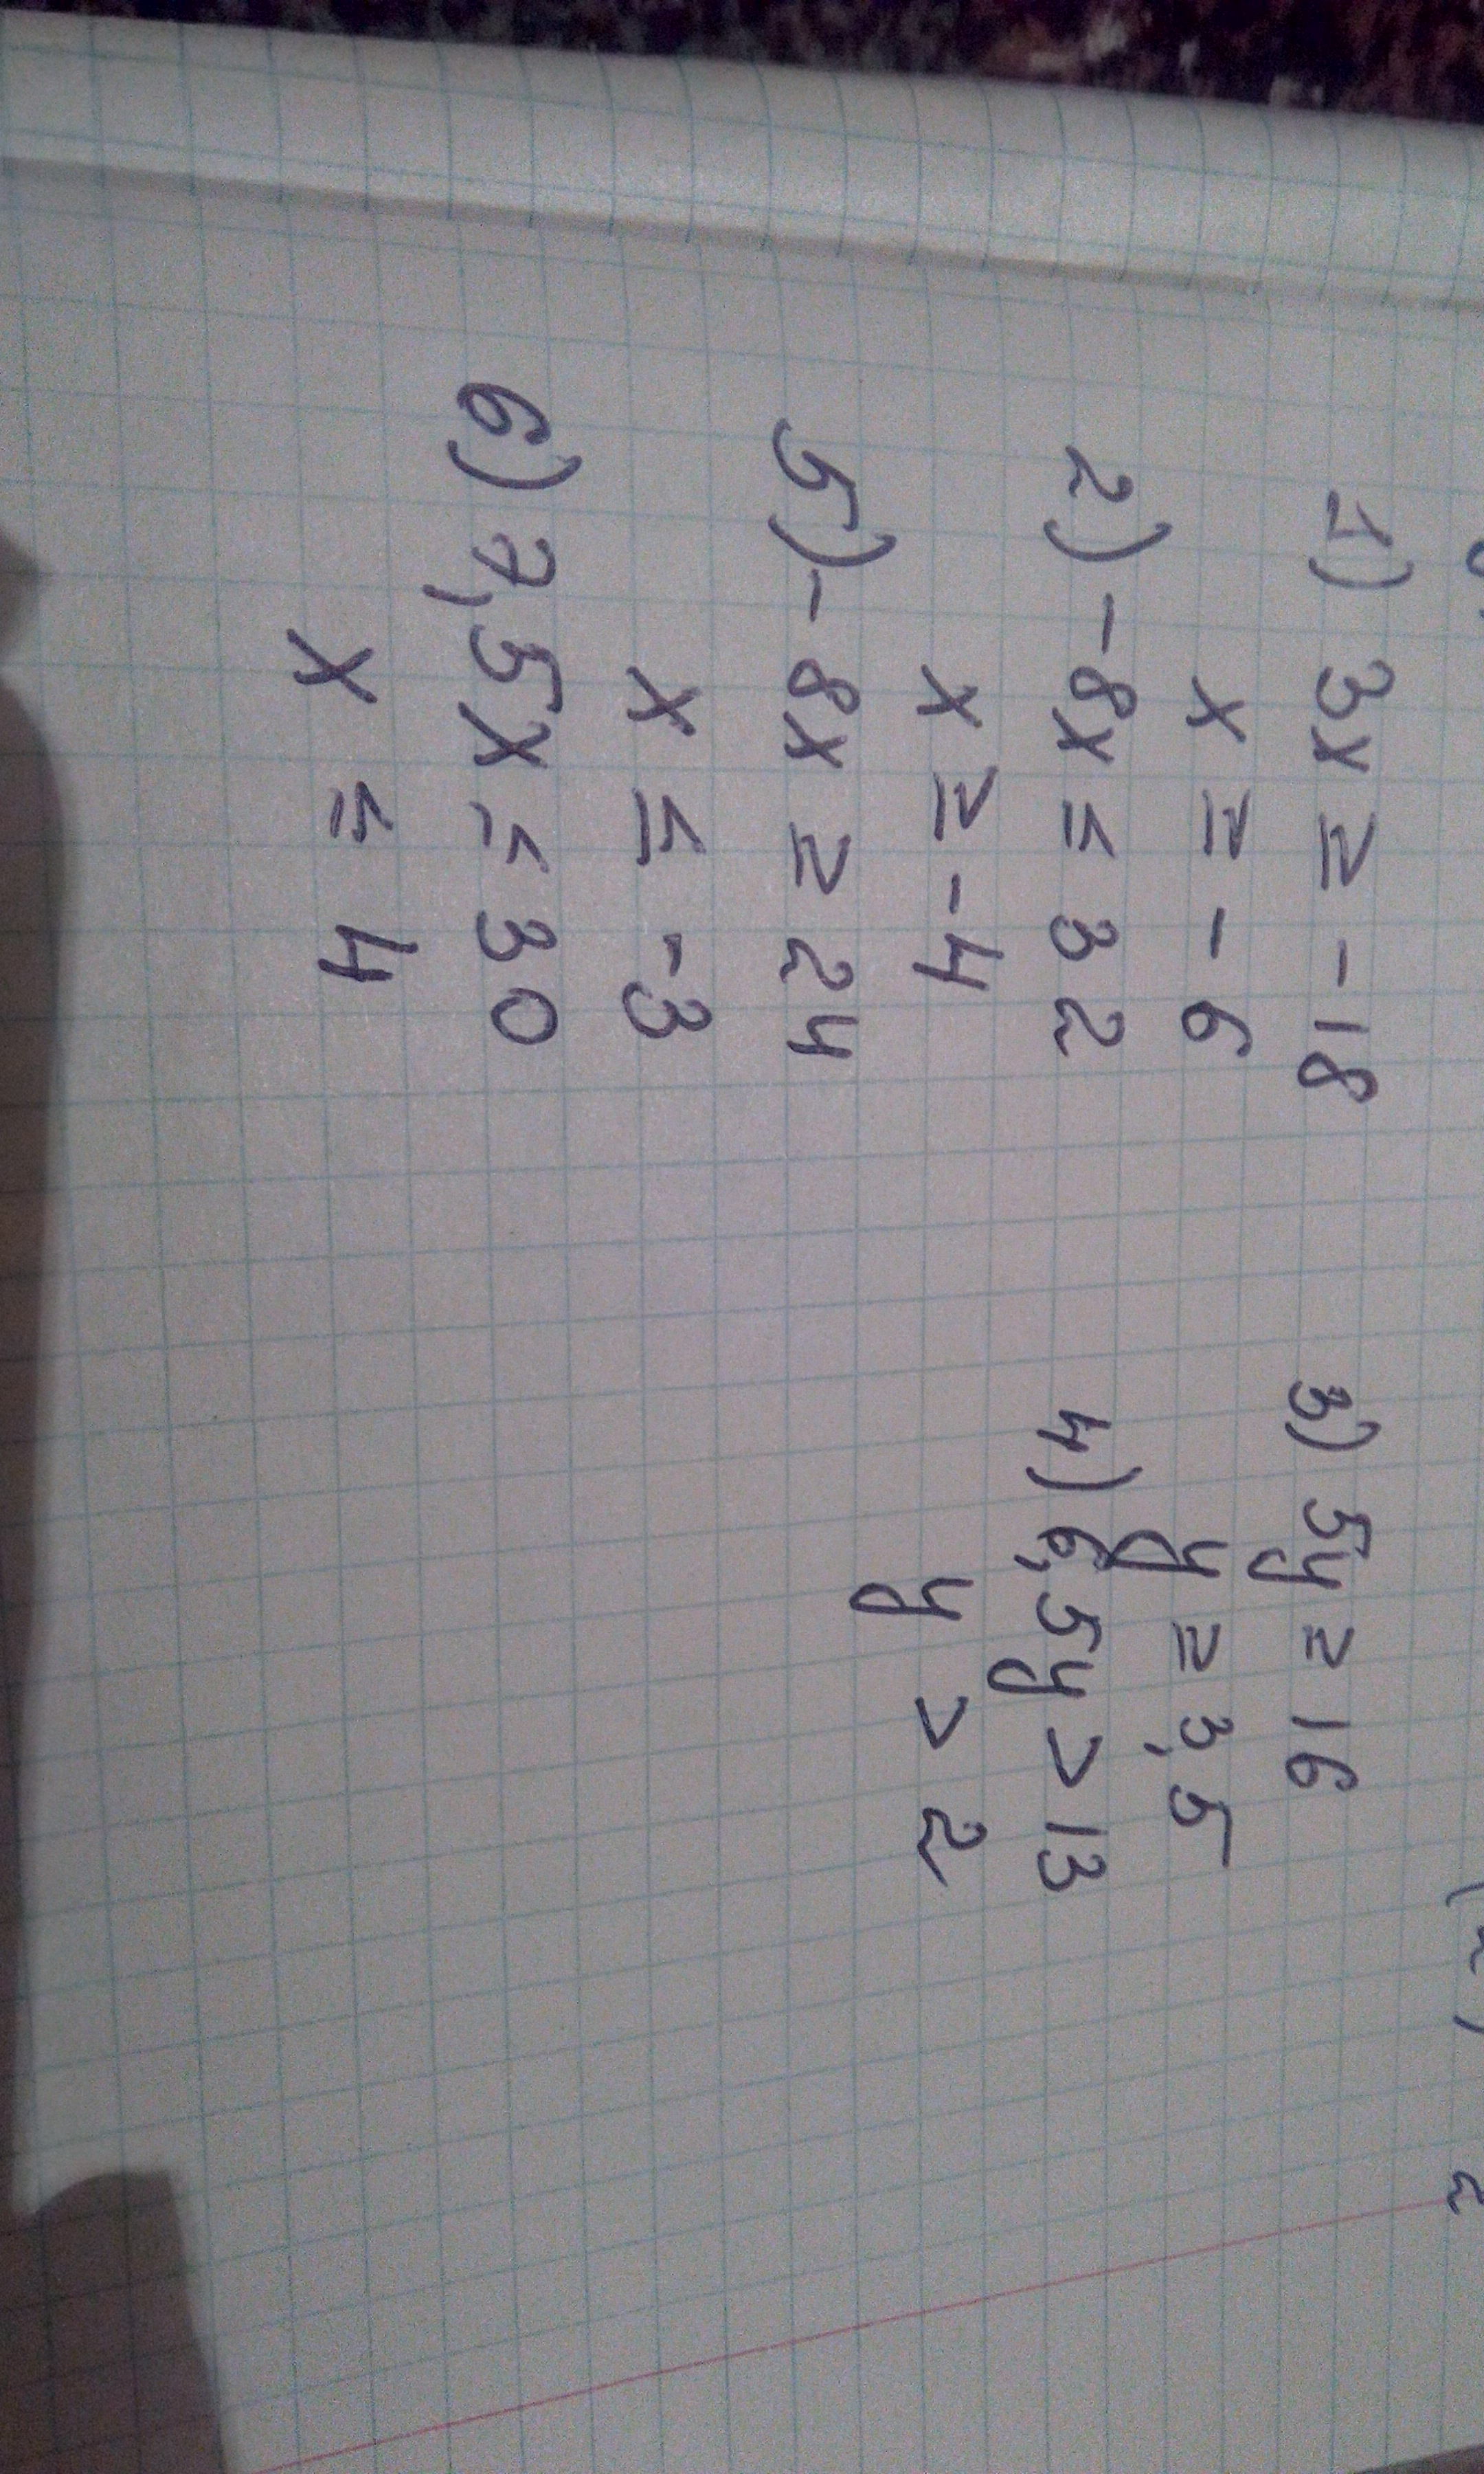 1) 3x ≥ -18
x ≥ -6
2) -8x ≤ 32
x ≥ -4
5) -8x ≥ 24
x ≤ -3
6) 7,5x ≤ 30
x ≤ 4
3) 5y ≥ 16
y ≥ 3,5
4) 6,5y > 13
y > 2